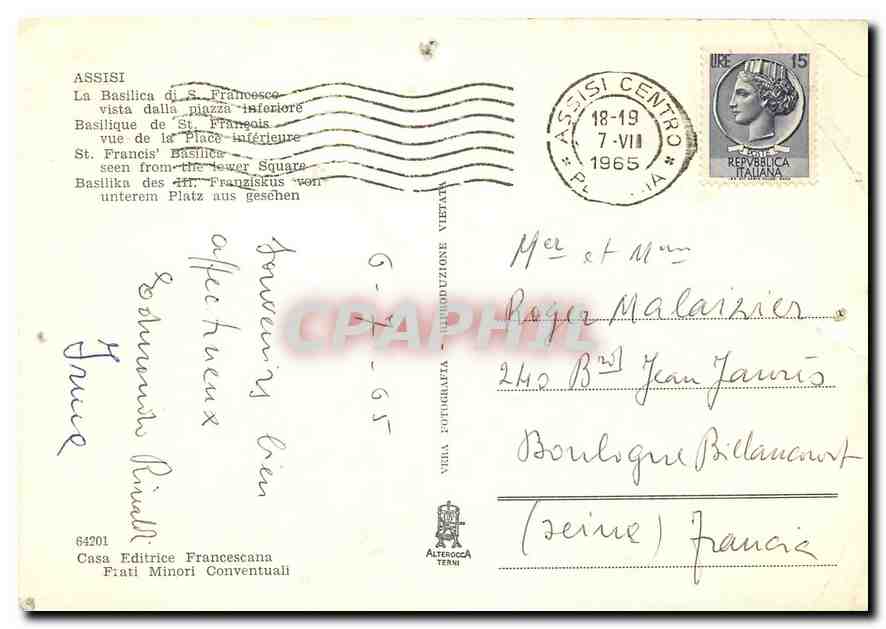 ASSISI
La Basilica di S. Francesco
vista dalla piazza inferiore
Basilique de St. François
vue de la Place inférieure
St. Francis' Basilica
seen from the lower Square
Basilika des Hl. Franziskus von
unterem Platz aus gesehen
ASSISI CENTRO
18-19
7-VII
1965
LIRE 15
POSTE
REPVBBLICA
ITALIANA
6-7-65
Souvenirs bien
affectueux
Edmondo Rinaldi
Irma
VERA FOTOGRAFIA - RIPRODUZIONE VIETATA
CPAPHIL
Mer et Mme
Roger Malaizier
240 Brd Jean Jaurès
Boulogne Billancourt
(Seine) Francia
64201
Casa Editrice Francescana
Frati Minori Conventuali
ALTEROCCA
TERNI